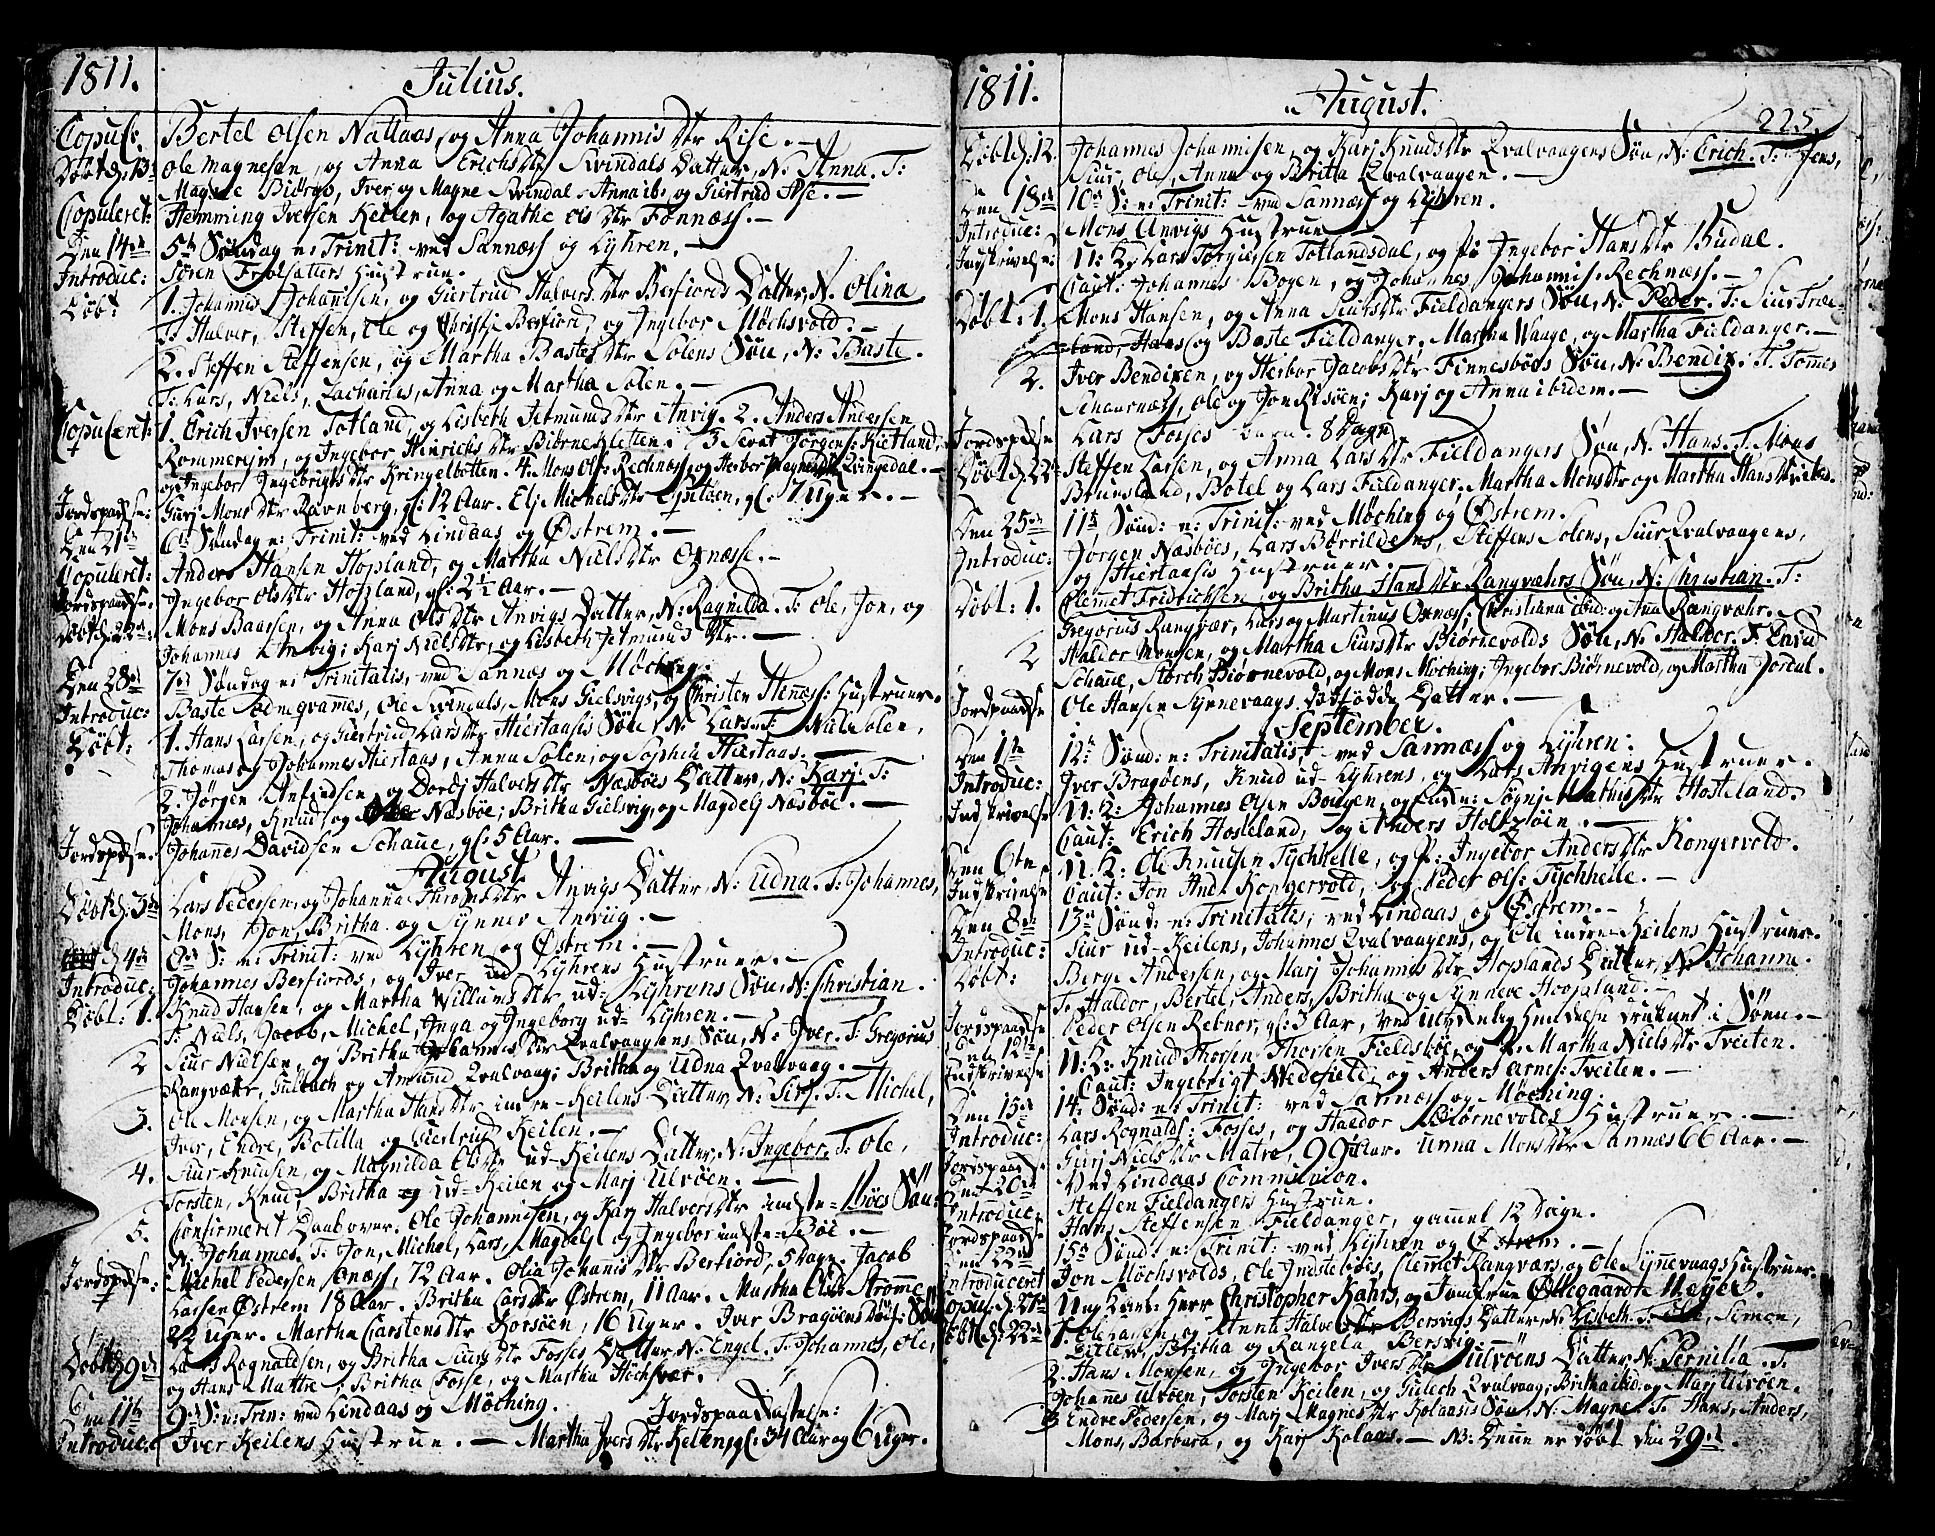 1811. Julius.
Copul: Bertel Olsen Natlaas, og Anna Johannis Dtr Rise. —
Døbt d: 13de Ole Magnesen, og Anna Erichs Dtr Svindals Datter, N: Anna. T:
Magne Biörge, Iver og Magne Svindal, Anna ib: og Giertrud
Copuleret: Hemming Iversen Keilen, og Agathe Ols Dtr Fonnæss. —
Den 14de 5te Søndag n: Trinit: ved Sannæss og Lyhren. —
Introduc: Søren Hustrue.
Døbt 1. Johannis Johannisen, og Giertrud Halvers Dtr Berfiords Datter, N. Olina
T: Halver, Steffen, Ole og Christi Berfiord, og Ingebor Möchsvold. —
2. Steffen Steffensen, og Martha Bastes Dtr Solens Søn, N: Baste.
T: Lars, Niels, Zacharias, Anna og Martha Solen. —
Copuleret: 1. Erich Iversen Totland, og Lisbeth Jetmunds Dtr Anvig. 2. Anders Andersen
Rommereim, og Ingebor Hinrichs Dtr Biörnekletten. 3 Sevat Jörgens: Kietland,
og Ingebor Ingebrigts Dtr Kringelbotten. 4. Mons Ols: Rechnæss, og Herbor Magnes Dtr Qvingedal. —
Jordspaadse: Guri Mons Dtr Ravnberg, gl: 12 Aar. Eli Michels Dtr, gl: 7 Uger. —
Den 21de 6te Søndag n: Trinit: ved Lindaas og Østrem. —
Copuleret: Anders Hansen Hopsland, og Martha Niels Dtr Oxnæss. —
Jordspaadse. Ingebor Ols Dtr Hopland, gl: 2½ Aar. —
Døbt d: 22de Mons Baarsen, og Anna Ols Dtr Anvigs Datter, N: Ragnilda. T: Ole, Jon, og
Johannes Anvig; Kari Niels Dtr, og Lisbeth Jetmunds Dtr. —
Den 28de 7de Søndag n: Trinitatis, ved Sannæs og Möching.
Introduc: Baste, Ole Svindals, Mons Gielsvigs, og Christen Stenæss: Hustruer.
Døbt: 1. Hans Larsen, og Giertrud Lars Dtr Hiertaasis Søn, N: Lars. T: Niels Solen,
Thomas og Johannes Hiertaas, Anna Solen, og Sophia Hiertaas. —
2. Jørgen Anfindsen og Dordj Halvers Dtr Næsbøes Datter, N: Karj. T:
Johannes, Knud og Næsbøe; Britha Gielsvig, og Magdelj Næsbøe. —
Jordspdse. Johannes Davidsen Schaue, gl: 5 Aar. —
August
Døbt d: 3de Lars Pedersen, og Johanna Thoms Dtr Anvigs Datter, N: Udna. T: Johannes,
Mons, Jon, Britha og Synnev Anvig. —
d: 4de 8de S: n: Trinit: ved Lyhren og Østrem. —
Introduc: Johannes Berfiords, og Iver ud Lyhrens Hustruer. —
Døbt: 1. Knud Hansen, og Martha Willums Dtr ud: Lyhrens Søn, N: Christian.
T: Niels, Jacob, Michel, Inga og Ingeborg ud= Lyhren. —
2 Siur Nielsen, og Britha Johannes Dtr Qvalvaagens Søn, N: Iver. T: Gregorius
Rangvær, Gulbach og Amund Qvalvaag; Britha og Udna Qvalvaag. —
3. Ole Monsen, og Martha Hans Dtr indre=Keilens Datter, N: Siri. T: Michel,
Iver, Endre, Botilla og Giertrud Keilen. —
4. Siur Knudsen, og Magnilda Ols Dtr ud=Keilens Datter, N: Ingebor. T: Ole,
Torsten, Knud, Britha og ud=Keilen og Marj Ulvøen. —
5. Confirmeret Daab over. Ole Johannisen, og Karj Halvers Dtr indste=Bøes Søn
N: Johannes. T: Jon, Michel, Lars, Magdelj og Ingebor indste=Bøe. —
Jordspdse: Michel Pedersen Oxnæss, 72 Aar. Olia Johanis Dtr Berfiord, 5 Dage. Jacob
Larsen Østrem 18 Aar. Britha Lars Dtr Østrem, 11 Aar. Martha Ols Dtr Strømme
22 Uger. Martha Carstens Dtr Korsøen, 16 Uger. Iver Bragøens
Døbt d: 9de Lars Rognaldsen, og Britha Siurs Dtr Fosses Datter, N: Engel. T: Johannes, Ole,
og Hans Mattre, Britha Fosse, og Martha Høchsvær.
Den 11te 9de S: n: Trin: ved Lindaas og Möching. Jordspaadkastelse:
Introduc. Iver Keilens Hustrue. — Martha Ivers Dtr Keilen, gl: 34 Aar og 6 Uger.
1811. August. 225.
Døbt d: 12. Johannes Johannisen, og Karj Knuds Dtr Qvalvaagens Søn, N: Erich. T: Jens,
Siur, Ole, Anna og Britta Qvalvaagen. —
Den 18de 10de S: n: Trinit: ved Sannæss og Lyhren.
Introduc: Mons Anvigs Hustrue —
Indskrivelse: U: K: Lars Torgiersen Totlandsdal, og Pi: Ingebor Hans Dtr Budal.
Caut: Johannes Bogen, og Johannes Johannis: Rechnæss. —
Døbt: 1. Mons Hansen, og Anna Siurs Dtr Fieldangers Søn, N: Peder. T: Siur Træ=
land, Hans og Baste Fieldanger. Martha Waage, og Martha Fieldanger. —
2. Iver Bendixen, og Herbor Jacobs Dtr Finnesbøes Søn, N: Bendix. T: Tomes
Schaarnæss, Ole og Jon Risøen; Karj og Anna ibidem. —
Jordspadse Lars Fosses Barn. 8 Dage
Døbt d: 22de Steffen Larsen, og Anna Lars Dtr Fieldangers Søn, N: Hans. T: Mons
Bruusland, Botel og Lars Fieldanger, Martha Mons Dtr og Martha Hans Dtr ibid.
Den 25de 11te Sønd: n: Trinit: ved Möching og Østrem.
Introduc: Jørgen Næsbøes, Lars Børrildens, Steffens Solens, Siur Qvalvaagens,
og Hiertaasis Hustruer. —
Døbt: 1. Clemet Fridrichsen, og Britha Hans Dtr Rangværs Søn, N: Christian. T:
Gregorius Rangvær, Lars og Martinus Oxnæss; Christiana ibid: og Ana Rangvær. —
2 Haldor Monsen, og Martha Siurs Dtr Biørnevolds Søn, N: Haldor. T: David
Schaue, Storch Biørnevold, og Mons Möching; Ingebor Biørnevold, og Martha Jordal.
Jordspaadse Ole Hansen Synnevaags dødfødde Datter. —
September.
Den 1te 12te Sønd: n: Trinitatis, ved Sannæss og Lyhren:
Introduc: Iver Bragøens, Knud ud=Lyhrens, og Lars Anvigens Hustruer.
Indskrivelse U: K: Johannes Olsen Bougen, og Enke: Sygni Mathis Dtr Hosteland.
Caut: Erich Hosteland, og Anders Holtzøen. —
Den 6te U: K: Ole Knudsen Tychhelle, og P: Ingebor Anders Dtr Kongervold.
Indskrivelse Caut: Jon And: Kongervold, og Peder Ols: Tychhelle. —
Den 8de 13de Sønd: n: Trinitatis, ved Lindaas og Østrem. —
Introduc: Siur ud=Keilens, Johannes Qvalvaagens, og Ole indre=Keilens Hustruer.
Døbt: Berge Andersen, og Marj Johannis Dtr Hoplands Datter, N: Johanna.
T: Haldor, Bertel, Anders, Britha og Synneve Hopland. —
Jordspaadse Peder Olsen Rebnor, gl: 3 Aar, ved ulykkelig Hændelse druknet i Søen. —
Den 12te U: K: Knud Thorsen Fieldsbøe, og P. Martha Niels Dtr Tveiten.
Indskrivelse Caut: Ingebrigt Nedefield, og Anders Arnes: Tveiten. —
Den 15de 14. Sønd: n: Trinit: ved Sannæss og Möching.
Introduc: Lars Rognalds: Fosses, og Haldor Biørnevolds Hustruer. —
Jordspaadse Gurj Niels Dtr Matre, 99 Aar. Anna Mons Dtr Sannæs 66 Aar. —
Den 20de Ved Lindaas Communion.
Introduc. Steffen Fieldangers Hustrue.
Jordspaadse Hans Steffensen Fieldanger, gammel 12 Dage.
Den 22de 15de Sønd: n: Trinit: ved Lyhren og Østrem. —
Introduceret Jon Möchsvolds, Ole Indstebøes, Clemet Rangværs, og Ole Synnevaags Hustruer.
Copul: d: Ung Karl: Herr Christopher Kahrs, og Jomfrue Øllegaard Meyer.
Døbt d: 22de 1. Ole Larsen, og Anna Halvers Dtr Bersvigs Datter, N: Lisbeth. T: Ole, Simon,
Britha og Rangela Bersvig. —
2. Hans Monsen, og Ingebor Ivers Dtr Ulvøens Datter, N: Pernilla. T:
Johannes Ulvøen, Torsten Keilen, og Gulech Qvalvaag; Britha ibid: og Marj Ulvøen.
3 Endre Pedersen, og Marj Magnes Dtr Kolaasis Søn, N: Magne. T: Hans, Anders,
Mons, Barbara, og Karj Kolaas. — NB: Denne er døbt den 29de.